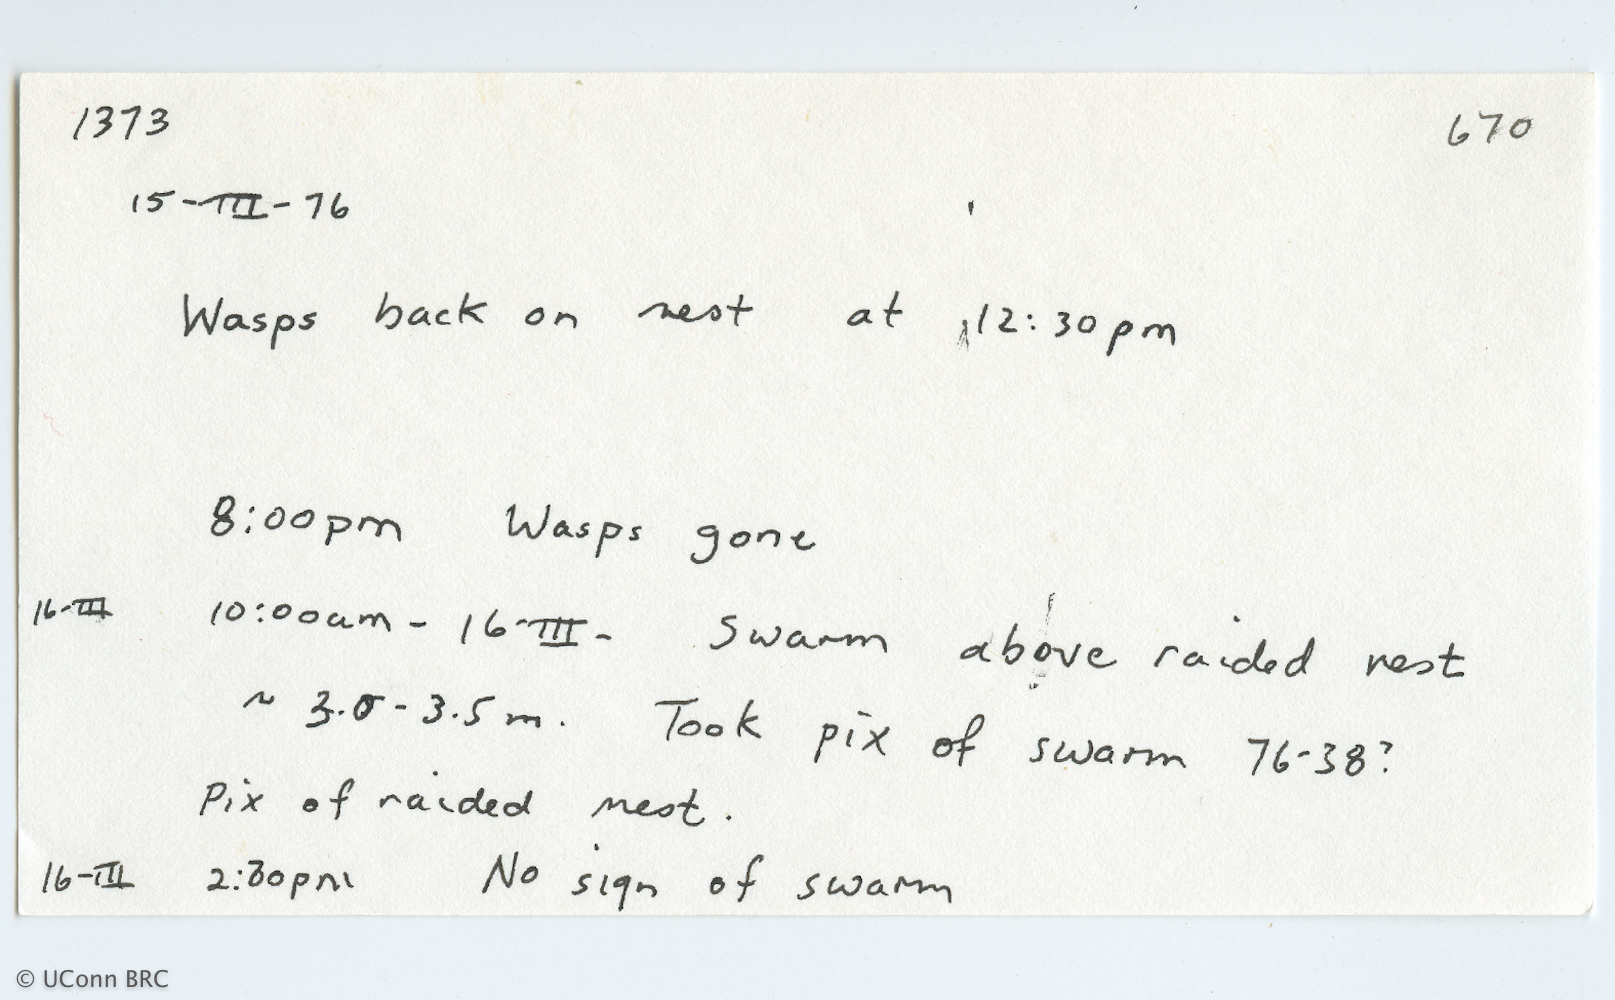 1373 670
15-III-76
Wasps back on nest at 12:30pm
8:00pm Wasps gone
16-III 10:00am - 16-III - Swarm above raided nest
~ 3.0-3.5m. Took pix of swarm 76-38?
Pix of raided nest.
16-III 2:30pm No sign of swarm
© UConn BRC